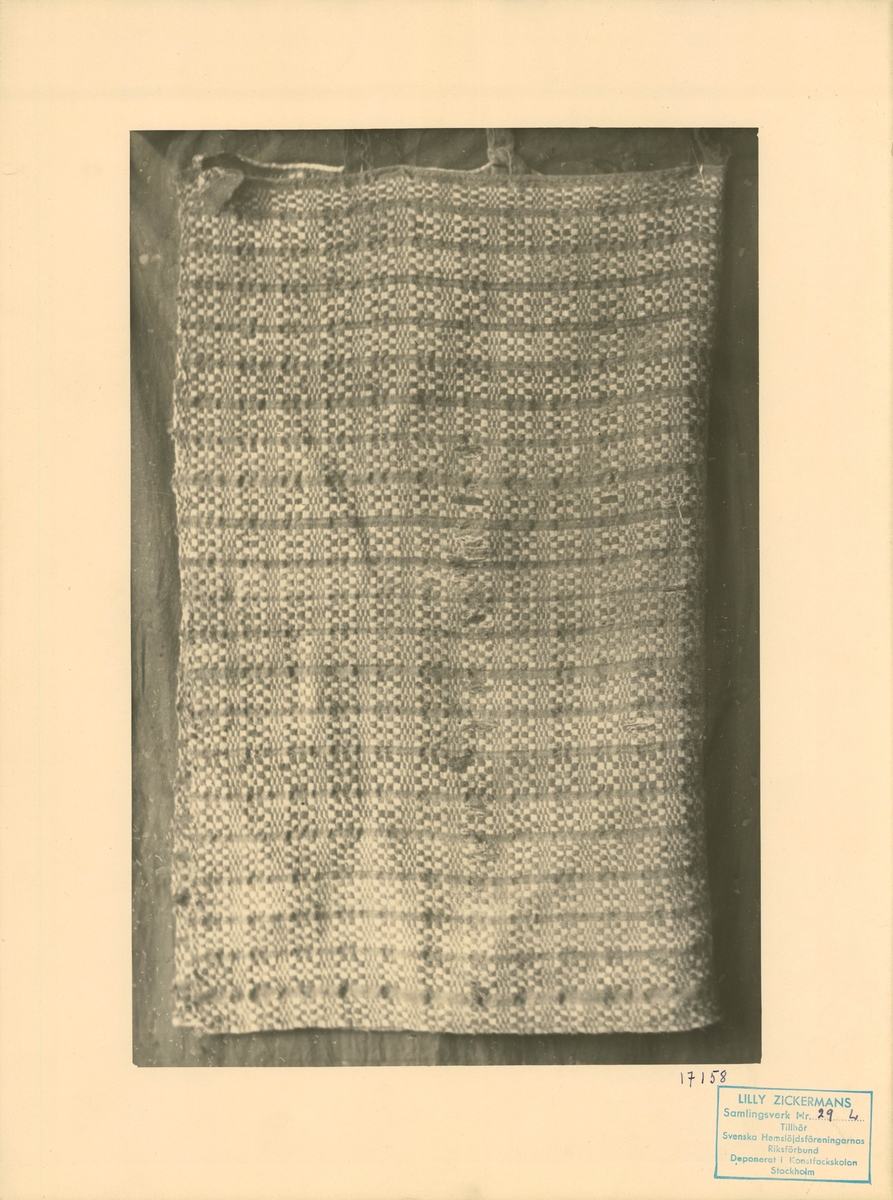 17158
LILLY ZICKERMANS
Samlingsverk Nr. 29 L
Tillhör
Svenska Hemslöjdsföreningarnas
Riksförbund
Deponerat i Konstfackskolan
Stockholm